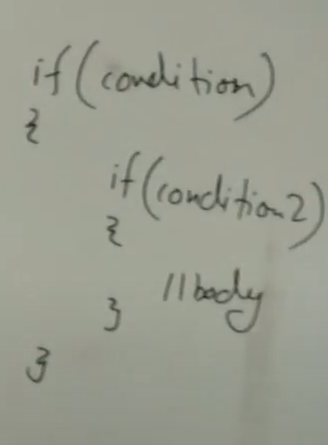 if(condition)
{
if(condition2)
{
//body
}
}